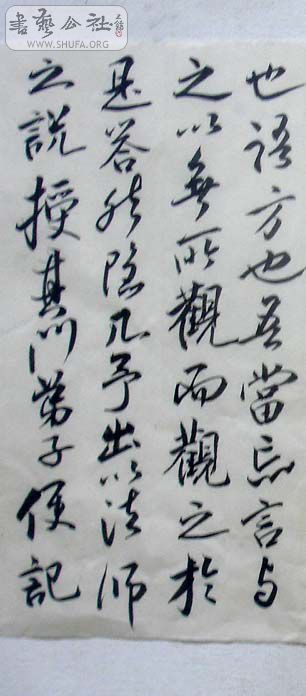 書藝公社
WWW.SHUFA.ORG
也語方也吾當忘言与
之以無所觀而觀之於
是答然隱几予出以法師
之說授其門弟子使記